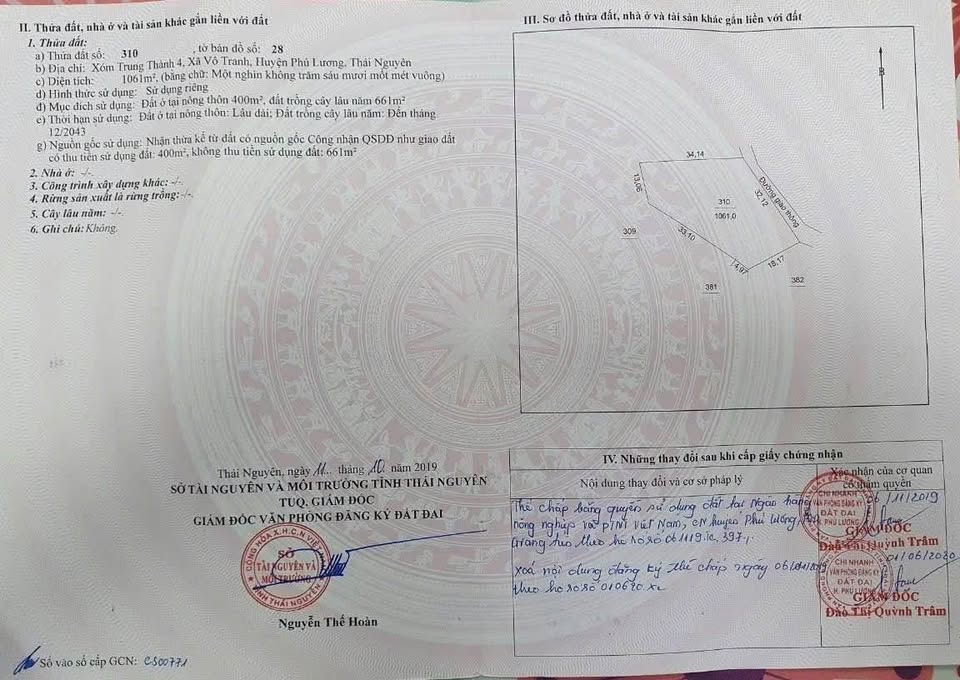 II. Thửa đất, nhà ở và tài sản khác gắn liền với đất
1. Thửa đất:
a) Thửa đất số: 310 , tờ bản đồ số: 28
b) Địa chỉ: Xóm Trung Thành 4, Xã Vô Tranh, Huyện Phú Lương, Thái Nguyên
c) Diện tích: 1061m², (bằng chữ: Một nghìn không trăm sáu mươi mốt mét vuông)
d) Hình thức sử dụng: Sử dụng riêng
đ) Mục đích sử dụng: Đất ở tại nông thôn 400m², đất trồng cây lâu năm 661m²
e) Thời hạn sử dụng: Đất ở tại nông thôn: Lâu dài; Đất trồng cây lâu năm: Đến tháng
12/2043
g) Nguồn gốc sử dụng: Nhận thừa kế từ đất có nguồn gốc Công nhận QSDĐ như giao đất
có thu tiền sử dụng đất: 400m², không thu tiền sử dụng đất: 661m²
2. Nhà ở: -/-.
3. Công trình xây dựng khác: -/-.
4. Rừng sản xuất là rừng trồng: -/-.
5. Cây lâu năm: -/-.
6. Ghi chú: Không.
Thái Nguyên, ngày 11 tháng 10 năm 2019
SỞ TÀI NGUYÊN VÀ MÔI TRƯỜNG TỈNH THÁI NGUYÊN
TUQ. GIÁM ĐỐC
GIÁM ĐỐC VĂN PHÒNG ĐĂNG KÝ ĐẤT ĐAI
CỘNG HÒA X.H.C.N VIỆT NAM
SỞ
TÀI NGUYÊN VÀ
MÔI TRƯỜNG
TỈNH THÁI NGUYÊN
Nguyễn Thế Hoàn
Số vào sổ cấp GCN: CS00771
III. Sơ đồ thửa đất, nhà ở và tài sản khác gắn liền với đất
B
34,14
13,06
Đường giao thông
32,12
310
1061,0
309
33,10
14,97
18,17
381
382
IV. Những thay đổi sau khi cấp giấy chứng nhận
Nội dung thay đổi và cơ sở pháp lý
Xác nhận của cơ quan
có thẩm quyền
Thế chấp bằng quyền sử dụng đất tại Ngân hàng
nông nghiệp và PTNT Việt Nam, CN huyện Phú Lương
theo hồ sơ số 061119
06/11/2019
CHI NHÁNH
VĂN PHÒNG ĐĂNG KÝ
ĐẤT ĐAI
H. PHÚ LƯƠNG
GIÁM ĐỐC
Đào Thị Quỳnh Trâm
Xoá nội dung đăng ký thế chấp ngày
theo hồ sơ số 010620
01/06/2020
CHI NHÁNH
VĂN PHÒNG ĐĂNG KÝ
ĐẤT ĐAI
H. PHÚ LƯƠNG
GIÁM ĐỐC
Đào Thị Quỳnh Trâm